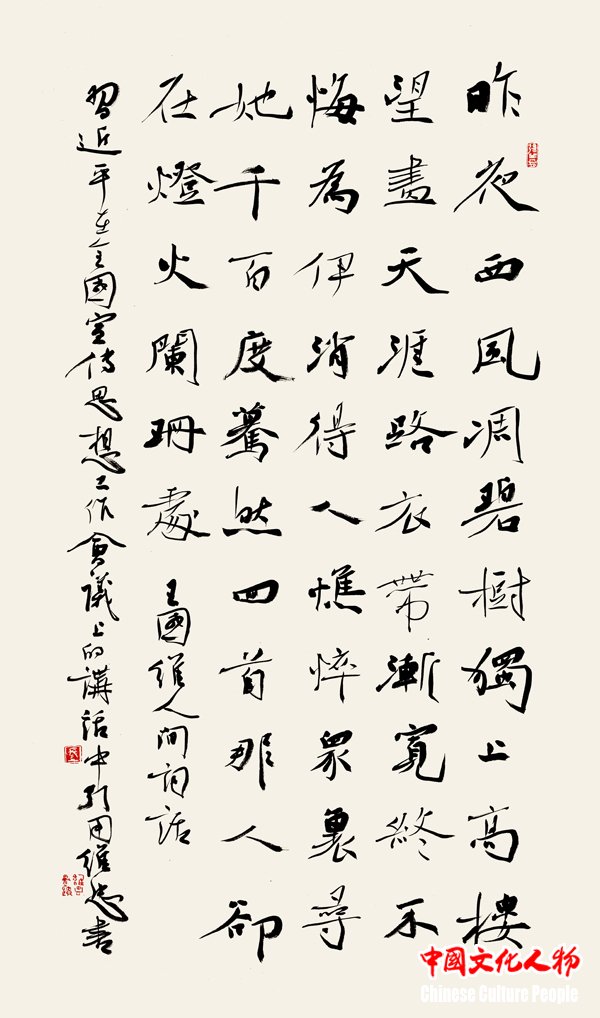 昨夜西風凋碧樹獨上高樓
望盡天涯路衣帶漸寬終不
悔為伊消得人憔悴眾裏尋
她千百度驀然回首那人卻
在燈火闌珊處 王國維人間詞話
習近平在全國宣傳思想工作會議上的講話中引用維忠書
中國文化人物
Chinese Culture People